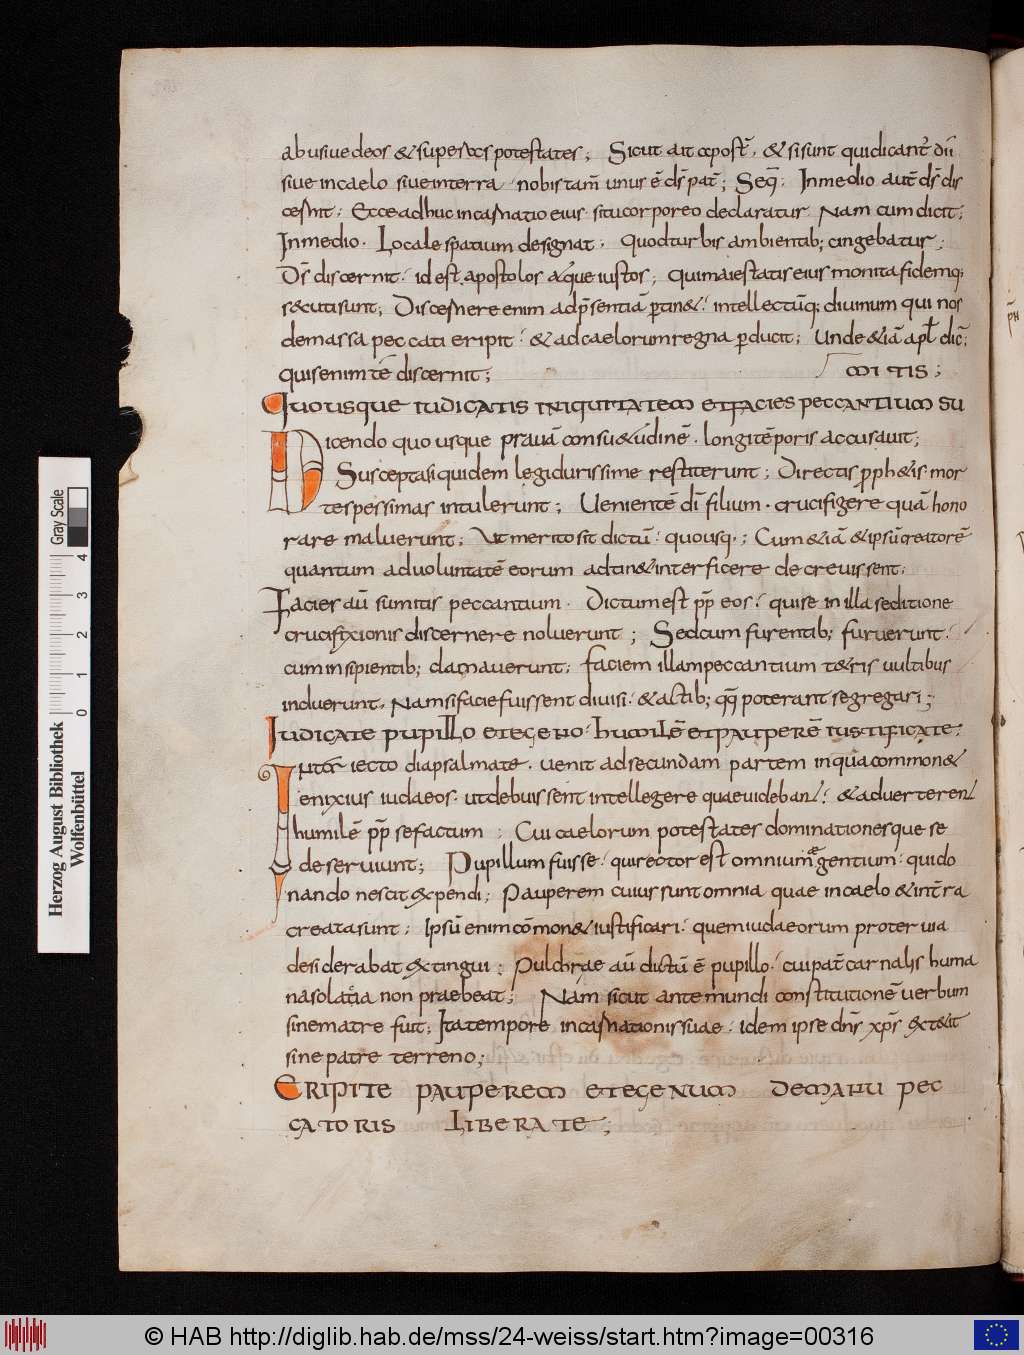 abusiue deos & super uos potestates; Sicut ait apost̄. & si sunt qui dicant̄ dii
siue in caelo siue in terra nobis tam̄ unus ē ds̄ pat̄; Seq̄. In medio aut̄ ds̄ dis
cernit; Ecce adhuc incarnatio eius situ corporeo declaratur Nam cum dicit;
In medio. Locale spatium designat. quod turbis ambientib; cingebatur;
Ds̄ discernit. id est apostolos atque iustos; qui maiestatis eius monita fidemq;
secuti sunt; Discernere enim ad p̄sentiā ꝑtin&. intellectūq; diuinum qui nos
de massa peccati eripit. & ad caelorum regna ꝑducit; Unde &iā apl̄ dic̄;
quis enim tē discernit; MITIS;
Quousque iudicatis iniquitatem et facies peccantium su
Dicendo quo usque prauā consu&udinē. longi tēporis accusauit;
Suscepta si quidem legi durissime restiterunt; Directis p̄ph&is mor
tes pessimas intulerunt; Uenientē di filium. crucifigere quā hono
rare maluerunt; Ut merito sit dictū. quousq.; Cum &iā & ipsū creatorē
quantum ad uoluntatē eorum adtin& interficere decreuissent.
Facies aū sumitis peccantium. Dictum est pp̄ eos. qui se in illa seditione
crucifixionis discernere noluerunt; Sed cum furentib; furuerunt.
cum insipientib; clamauerunt. faciem illam peccantium t&ris uultibus
induerunt. Nam si facie fuissent diuisi. & actib; qq̄ poterant segregari;
Iudicate pupillo et egeno. humilē et pauperē iustificate.
Inter iecto diapsalmate. uenit ad secundam partem in qua common&
enixius iudaeos. ut debuissent intellegere quae uidebant. & aduerterent
humilē pp̄ se factum; Cui caelorum potestates dominationesque se
deseruiunt; Pupillum fuisse. qui rector est omnium gentium. qui do
nando nescit expendi; Pauperem cuius sunt omnia quae in caelo & in t̄ra
creata sunt; Ipsū enim cōmon& iustificari. quem iudaeorum proteruia
desiderabat extingui; Pulchrae aū dictū ē pupillo. cui pat̄ carnalis huma
na solatia non praebeat; Nam sicut ante mundi constitutionē uerbum
sine matre fuit; Ita tempore incarnationis suae. idem ipse dn̄s xp̄s extitit
sine patre terreno;
ERIPITE PAUPEREM ET EGENUM DE MANU PEC
CATORIS LIBERATE;
Herzog August Bibliothek
Wolfenbüttel
0 1 2 3 4
Gray Scale
© HAB http://diglib.hab.de/mss/24-weiss/start.htm?image=00316